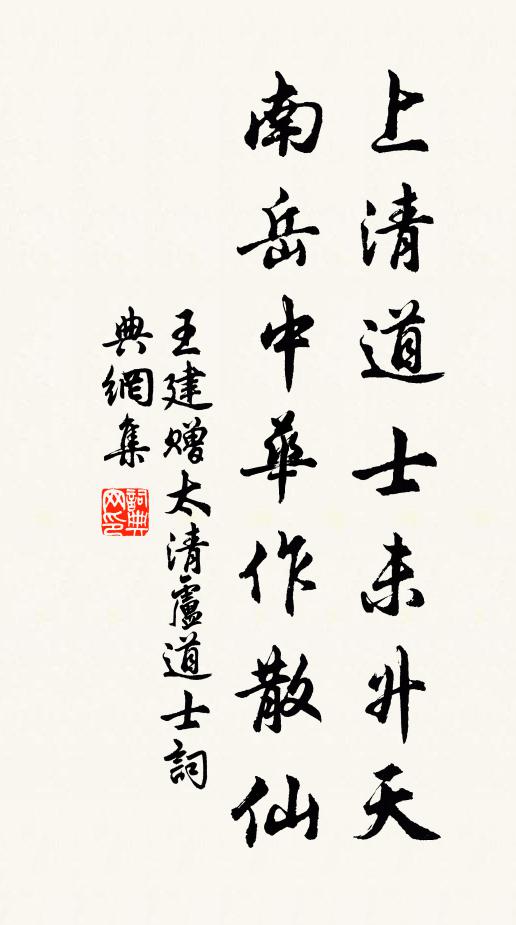 上清道士未升天
南岳中華作散仙
王建贈太清盧道士詞
典網集
詞典
网印